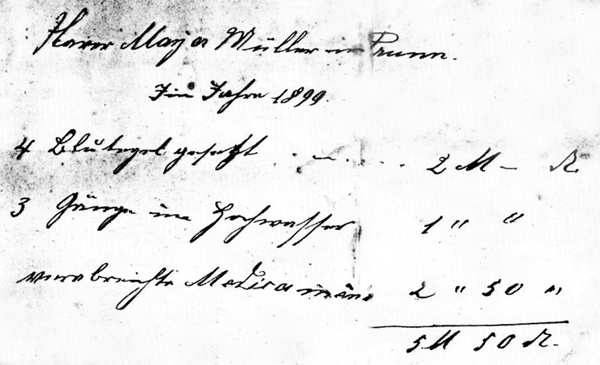 Herrn Mayer Müller in Prunn.
Im Jahre 1899
4 Blutegel gesetzt . . . . . 2 M – ₰
3 Gänge im Hochwasser 1 " "
verabreichte Medicamente 2 " 50 "
5 M 50 ₰